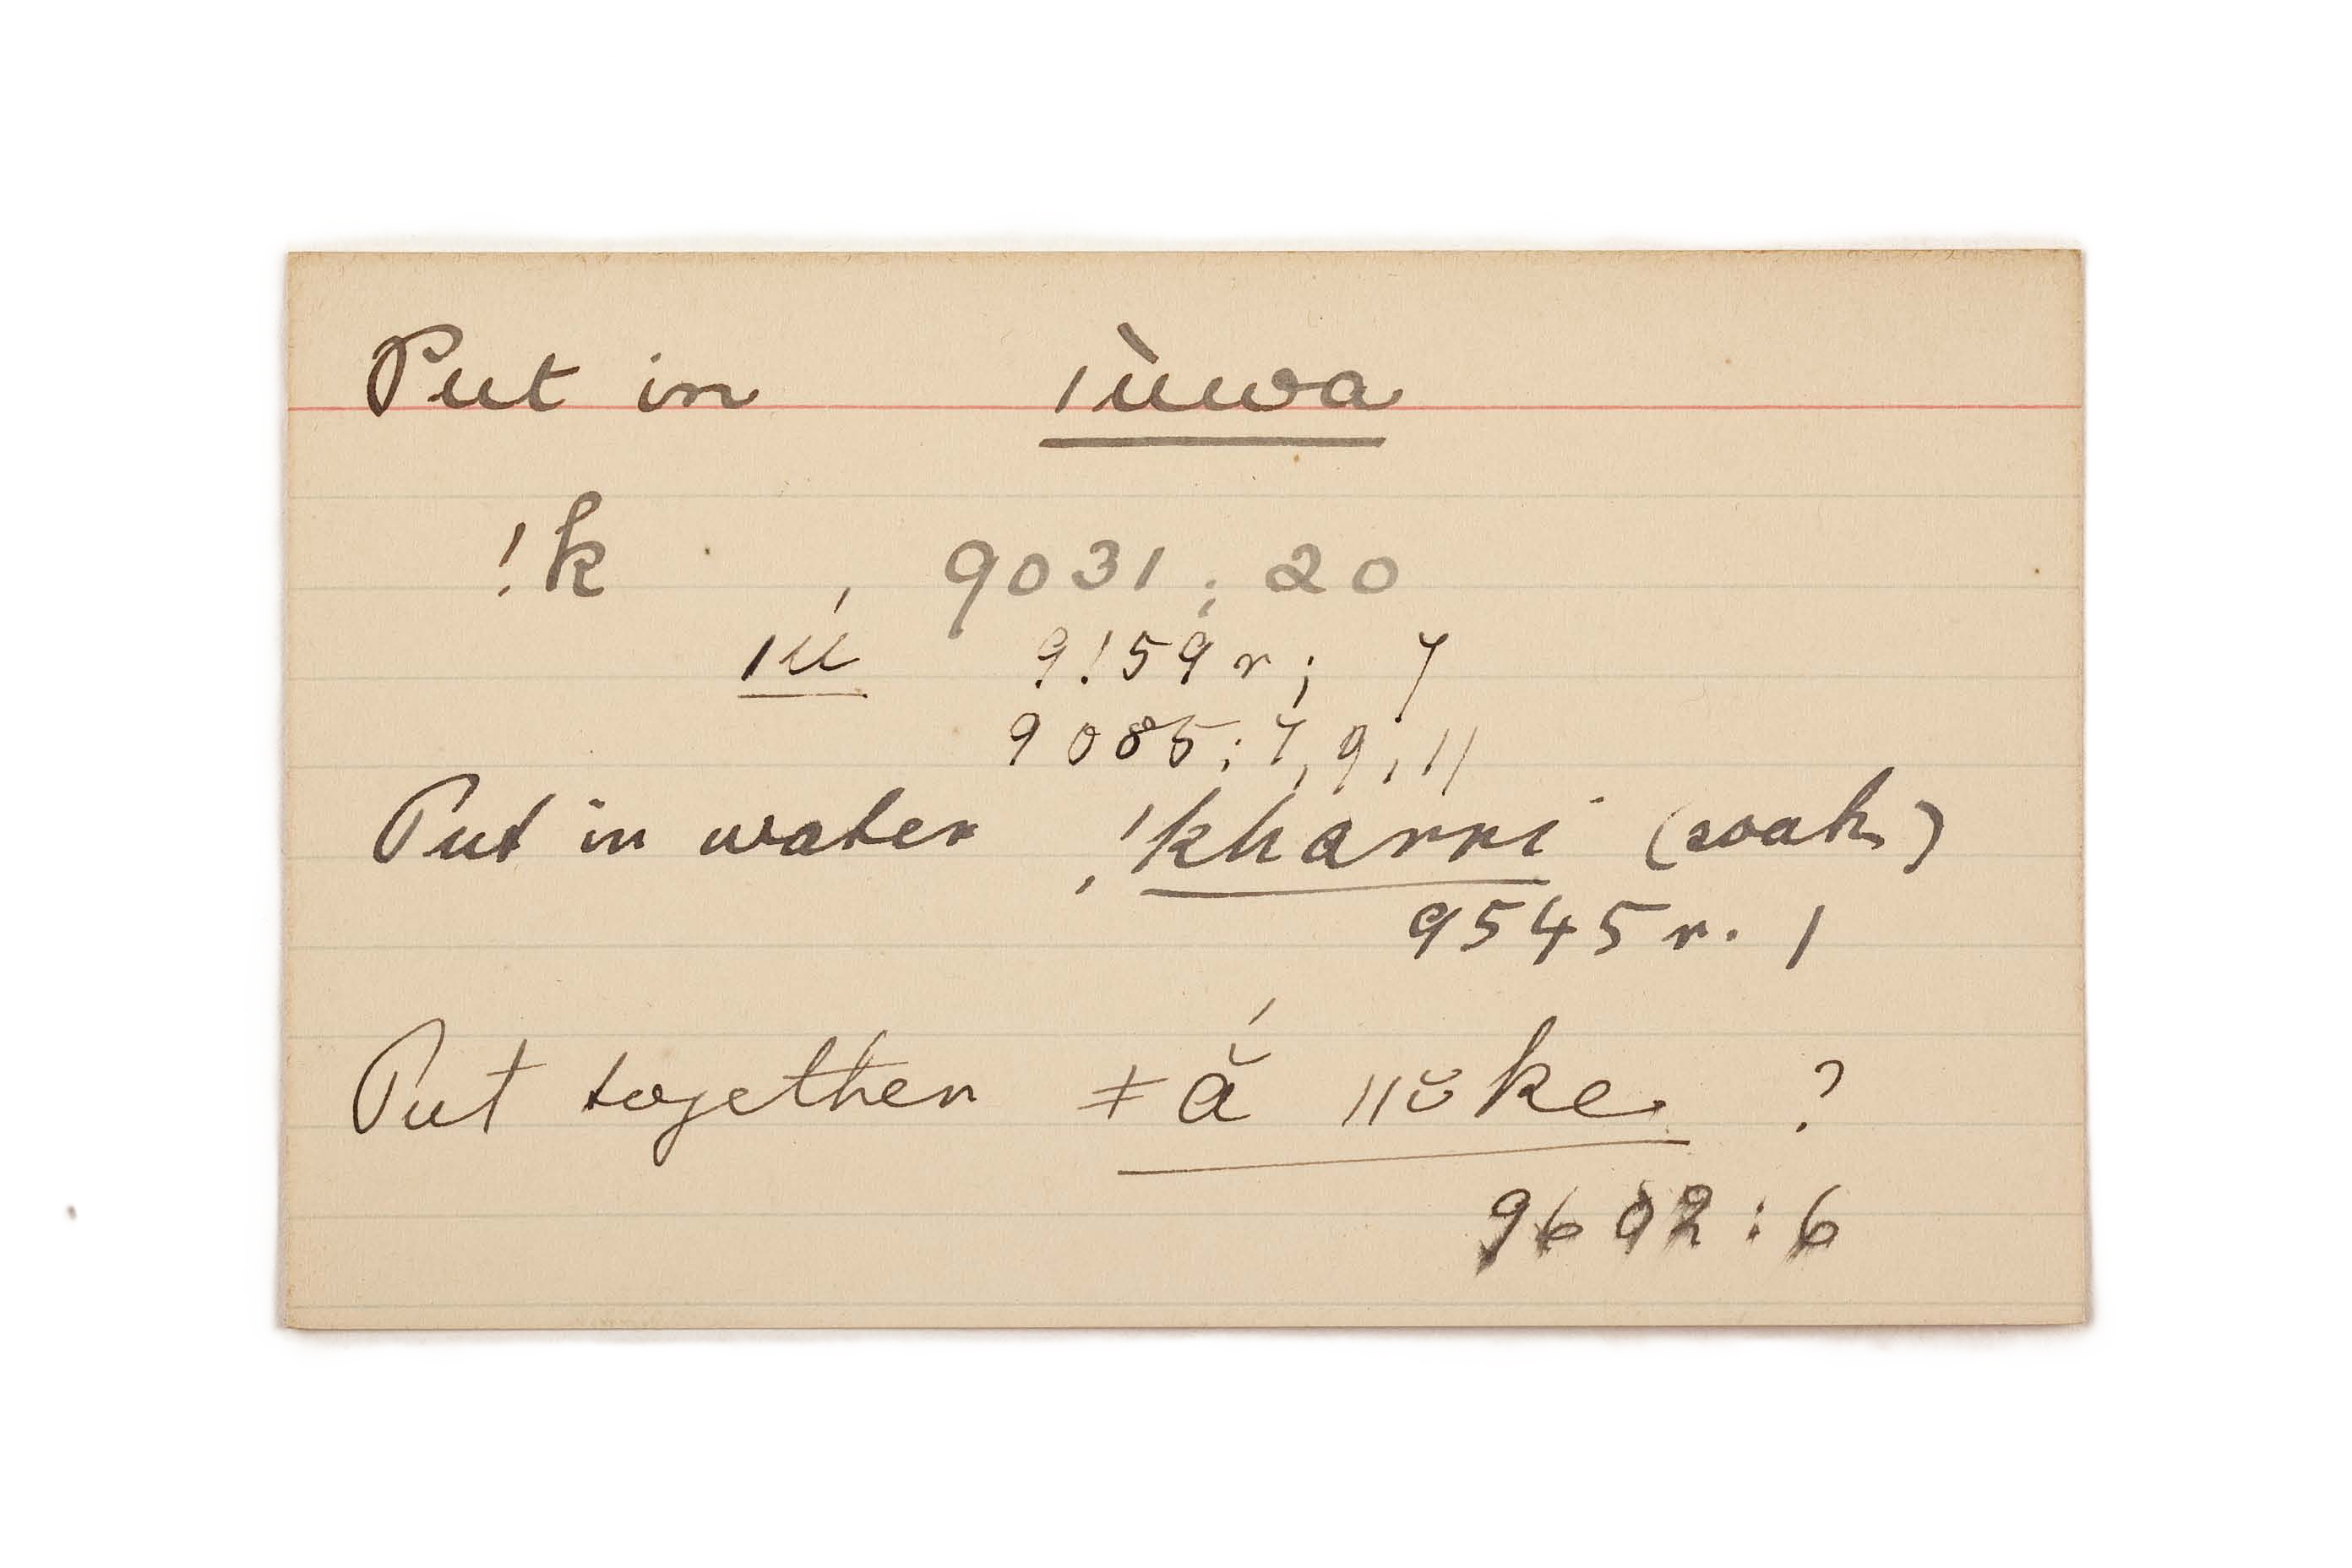 Put in ǀùwa
!k 9031; 20
ǀú 9!59 r; 7
9085; 7, 9, 11
Put in water !kharri (soak)
9545 r. 1
Put together ǂắ ǁŏke ?
9602 : 6